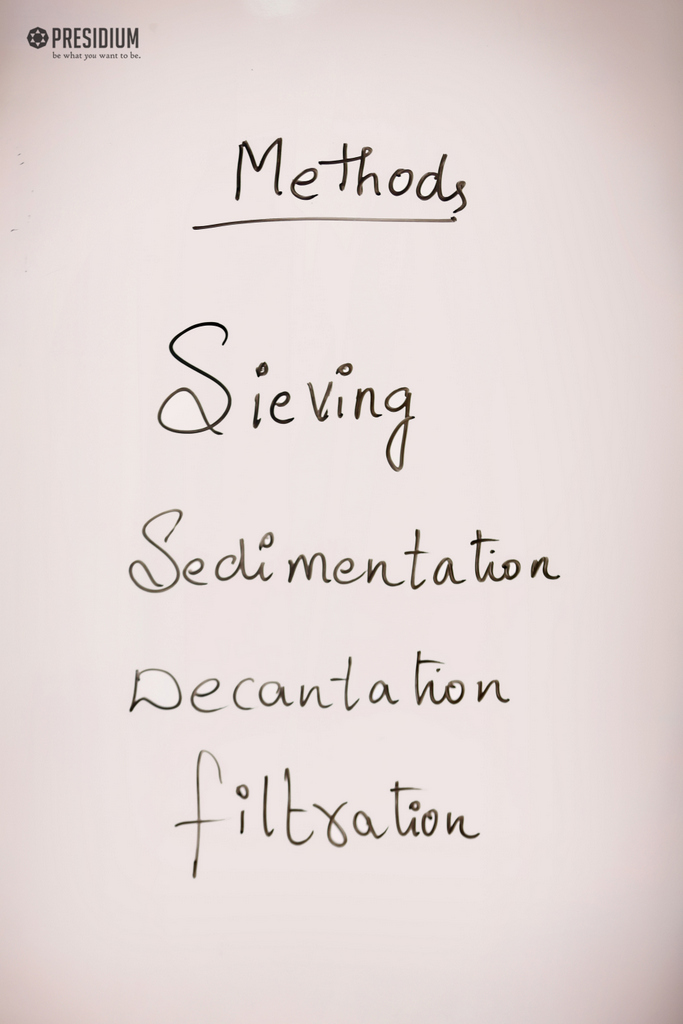 PRESIDIUM
be what you want to be.
Methods
Sieving
Sedimentation
Decantation
filtration